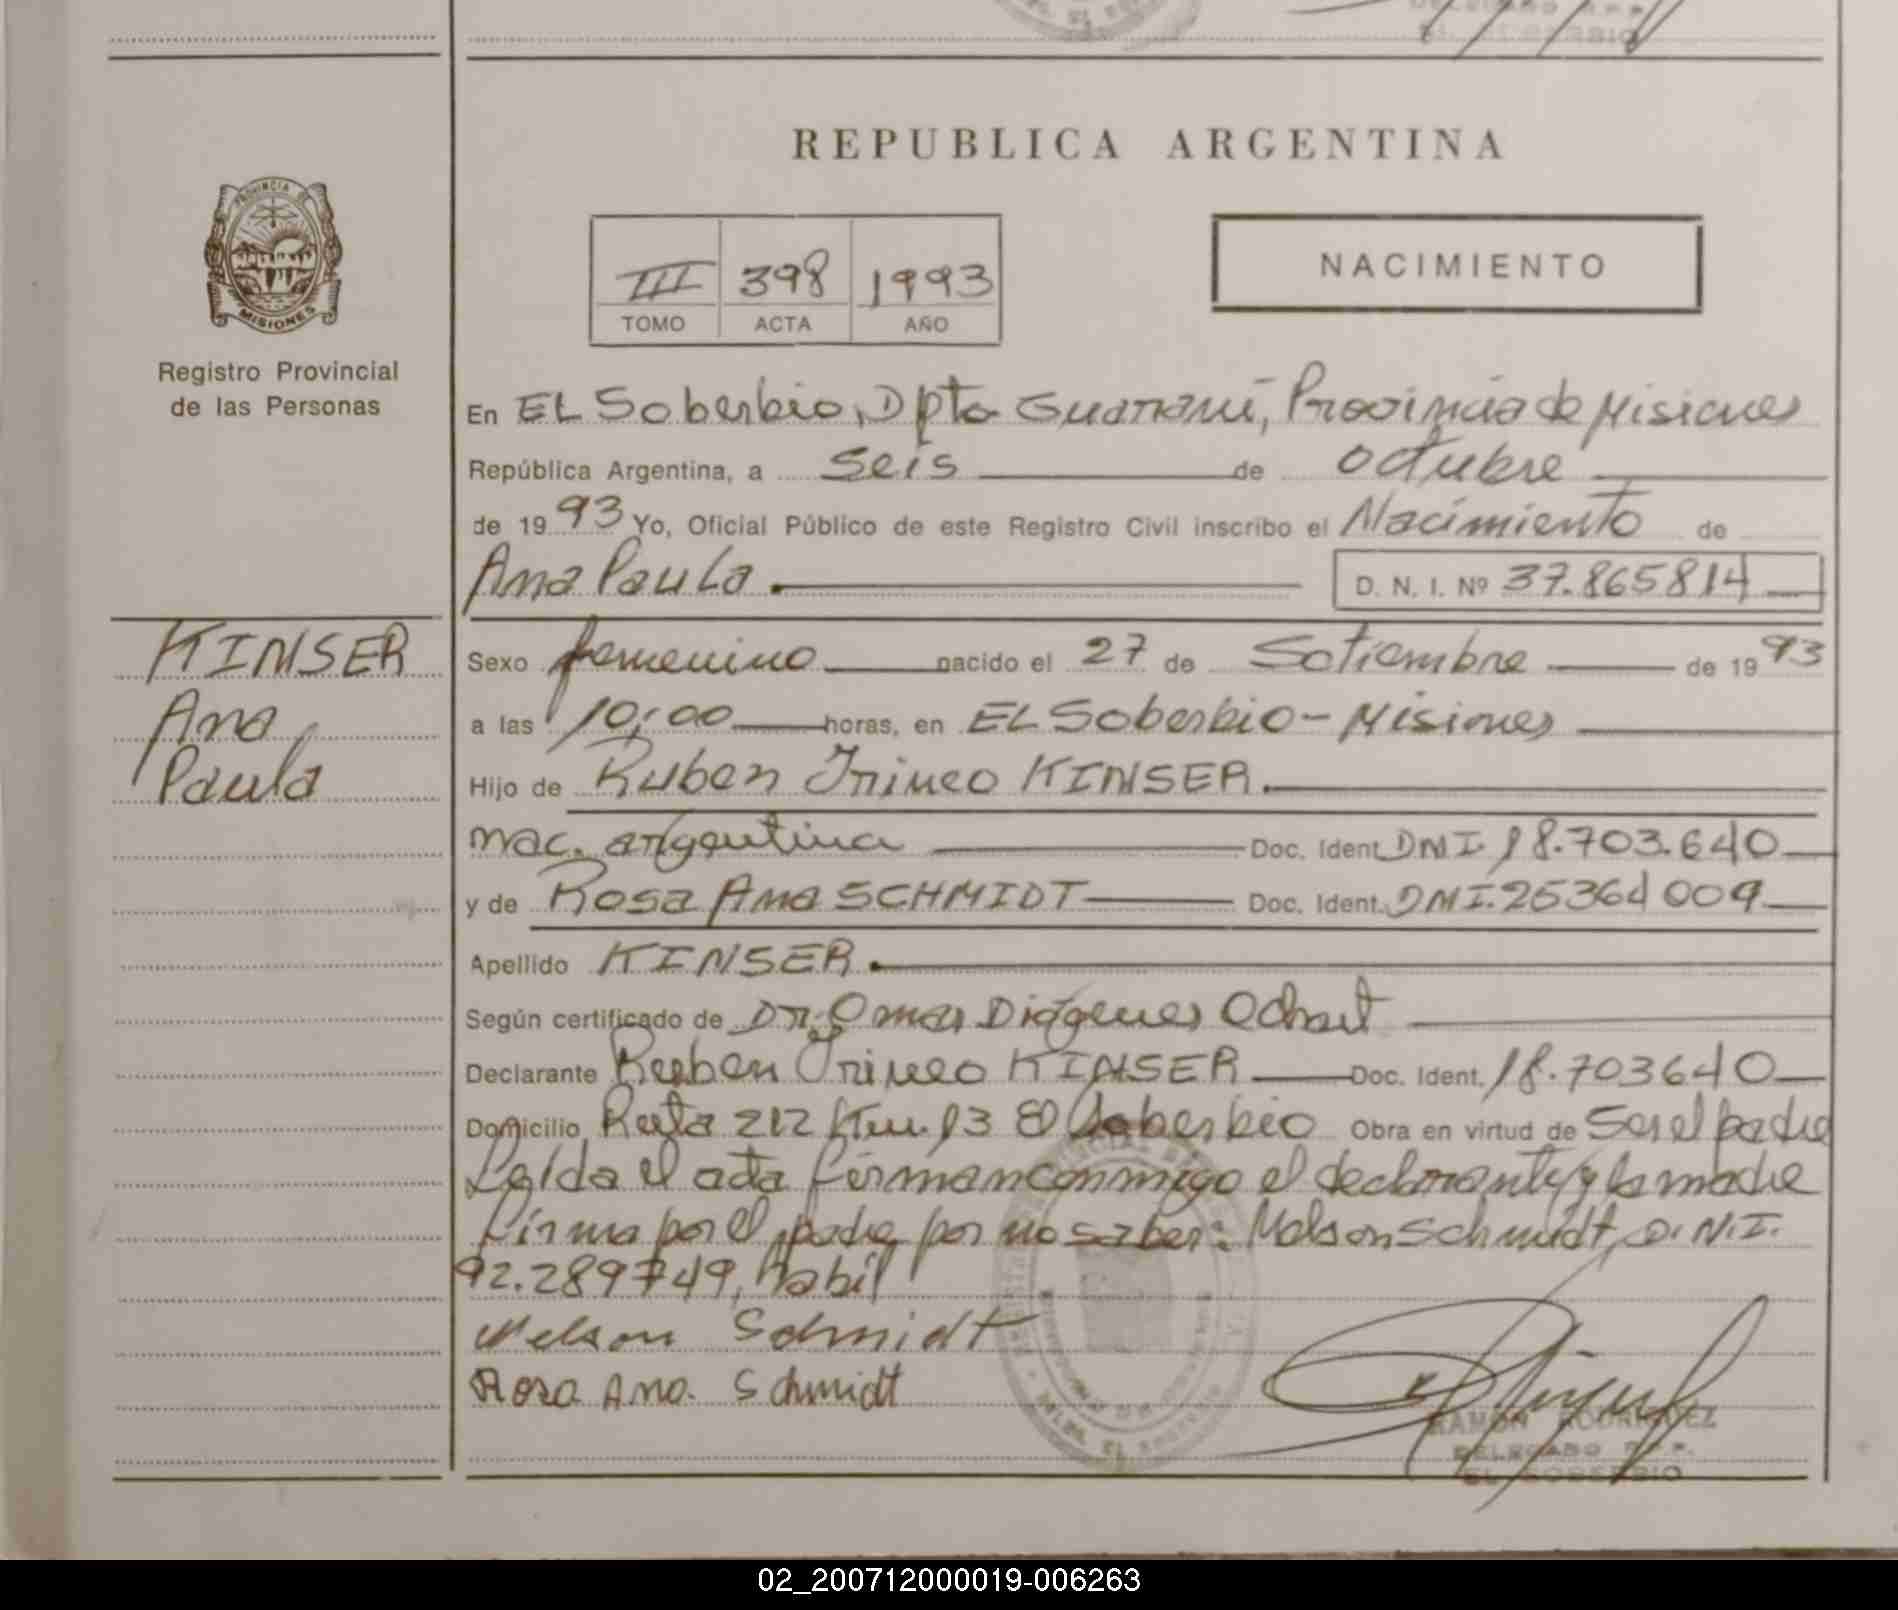 REPUBLICA ARGENTINA
PROVINCIA DE
MISIONES
Registro Provincial
de las Personas
III 398 1993
TOMO ACTA AÑO
NACIMIENTO
En EL Soberbio, Dpto Guaraní, Provincia de Misiones
República Argentina, a seis de octubre
de 1993 Yo, Oficial Público de este Registro Civil inscribo el Nacimiento de
Ana Paula. D. N. I. Nº 37.865814
KINSER
Ana
Paula
Sexo femenino nacido el 27 de Setiembre de 1993
a las 10,00 horas, en EL Soberbio - Misiones
Hijo de Ruben Irineo KINSER.
nac. argentina Doc. Ident. DNI. 18.703.640
y de Rosa Ana SCHMIDT Doc. Ident. DNI. 25364009
Apellido KINSER.
Según certificado de Dr. Omar Diógenes Ochart
Declarante Ruben Irineo KINSER Doc. Ident. 18.703640
Domicilio Ruta 212 Km. 13 El Soberbio Obra en virtud de Ser el padre
Leida el acta firman conmigo el declarante y la madre
firma por el padre por no saber: Nelson Schmidt, D.N.I.
92.289749, habil
Nelson Schmidt
Rosa Ana. Schmidt
RAMON RODRIGUEZ
DELEGADO R.P.P.
EL SOBERBIO
02_200712000019-006263